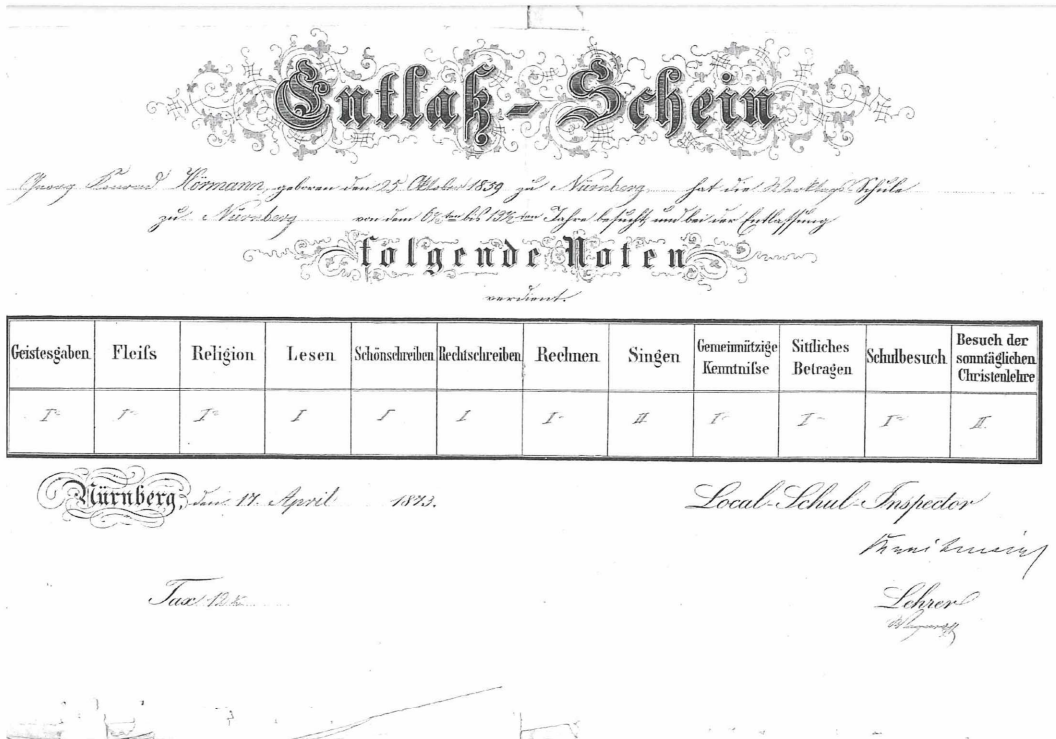 Entlaß-Schein
Georg Konrad Hörmann, geboren den 25 Oktober 1859 zu Nürnberg hat die Werktags Schule
zu Nürnberg von dem bis Jahre besucht, und bei der Entlassung
folgende Noten
verdient.
Geistesgaben Fleifs Religion Lesen Schönschreiben Rechtschreiben Rechnen Singen Gemeinnützige Kenntnifse Sittliches Betragen Schulbesuch Besuch der sonntäglichen Christenlehre
I I I I I I I II. I I I II.
Nürnberg, den 17. April 1873.
Local-Schul-Inspector
Tax 12 x
Lehrer